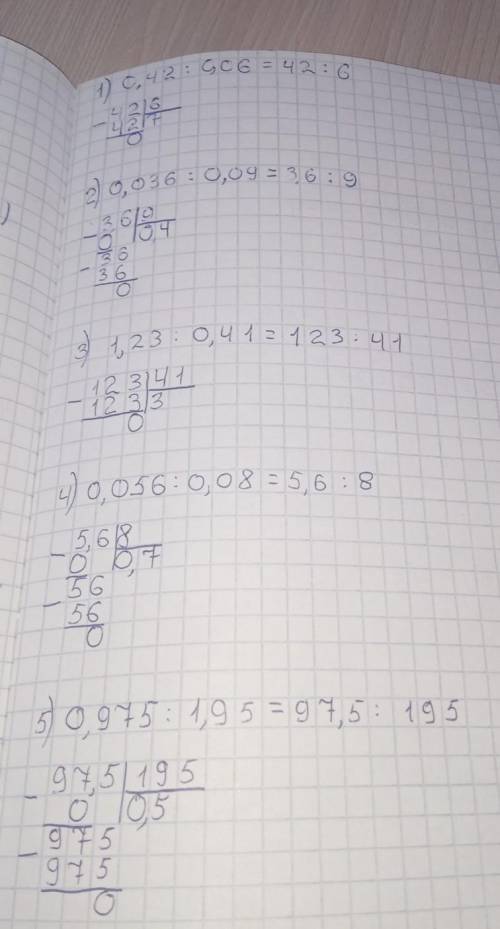 1) 0,42 : 0,06 = 42 : 6
- 42 | 6
42 | 7
0
2) 0,036 : 0,09 = 3,6 : 9
- 3 6 | 9
0 | 0,4
- 36
36
0
3) 1,23 : 0,41 = 123 : 41
- 123 | 41
123 | 3
0
4) 0,056 : 0,08 = 5,6 : 8
- 5,6 | 8
0 | 0,7
- 56
56
0
5) 0,975 : 1,95 = 97,5 : 195
- 97,5 | 195
0 | 0,5
- 975
975
0